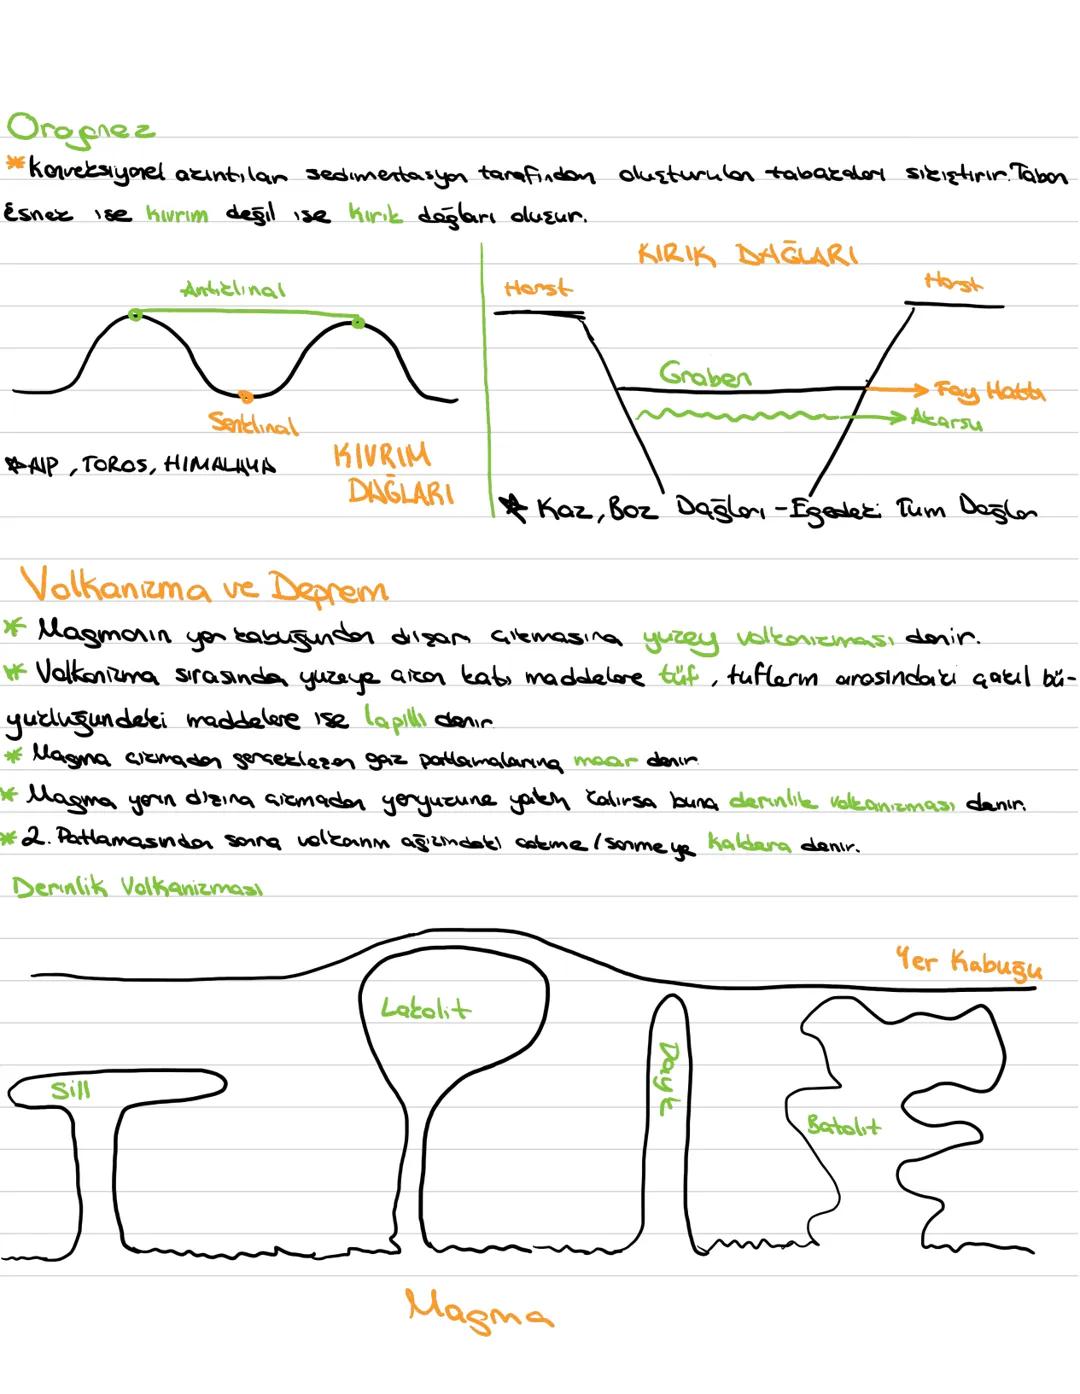 Orognez
* Konveksiyonel akıntılar sedimentasyon tarafından oluşturulan tabakaları sıkıştırır. Taban
Esnek ise kıvrım değil ise kırık dağları oluşur.
Antiklinal
Senklinal
* ALP, TOROS, HIMALAYA
KIVRIM
DAĞLARI
KIRIK DAĞLARI
Horst
Horst
Graben
Fay Hattı
Akarsu
* Kaz, Boz Dağları - Egedeki Tüm Dağlar
Volkanizma ve Deprem
* Magmanın yer kabuğundan dışarı çıkmasına yüzey volkanizması denir.
* Volkanizma sırasında yüzeye çıkan katı maddelere tüf, tüflerin arasındaki çakıl bü-
yüklüğündeki maddelere ise lapilli denir
* Magma çıkmadan gerçekleşen gaz patlamalarına maar denir
* Magma yerin dışına çıkmadan yeryüzüne yakın kalırsa buna derinlik volkanizması denir.
* 2. Patlamasından sonra volkanın ağızındaki çökme / sönmeye kaldera denir.
Derinlik Volkanizması
Yer Kabuğu
Lakolit
Sill
Dayk
Batolit
Magma